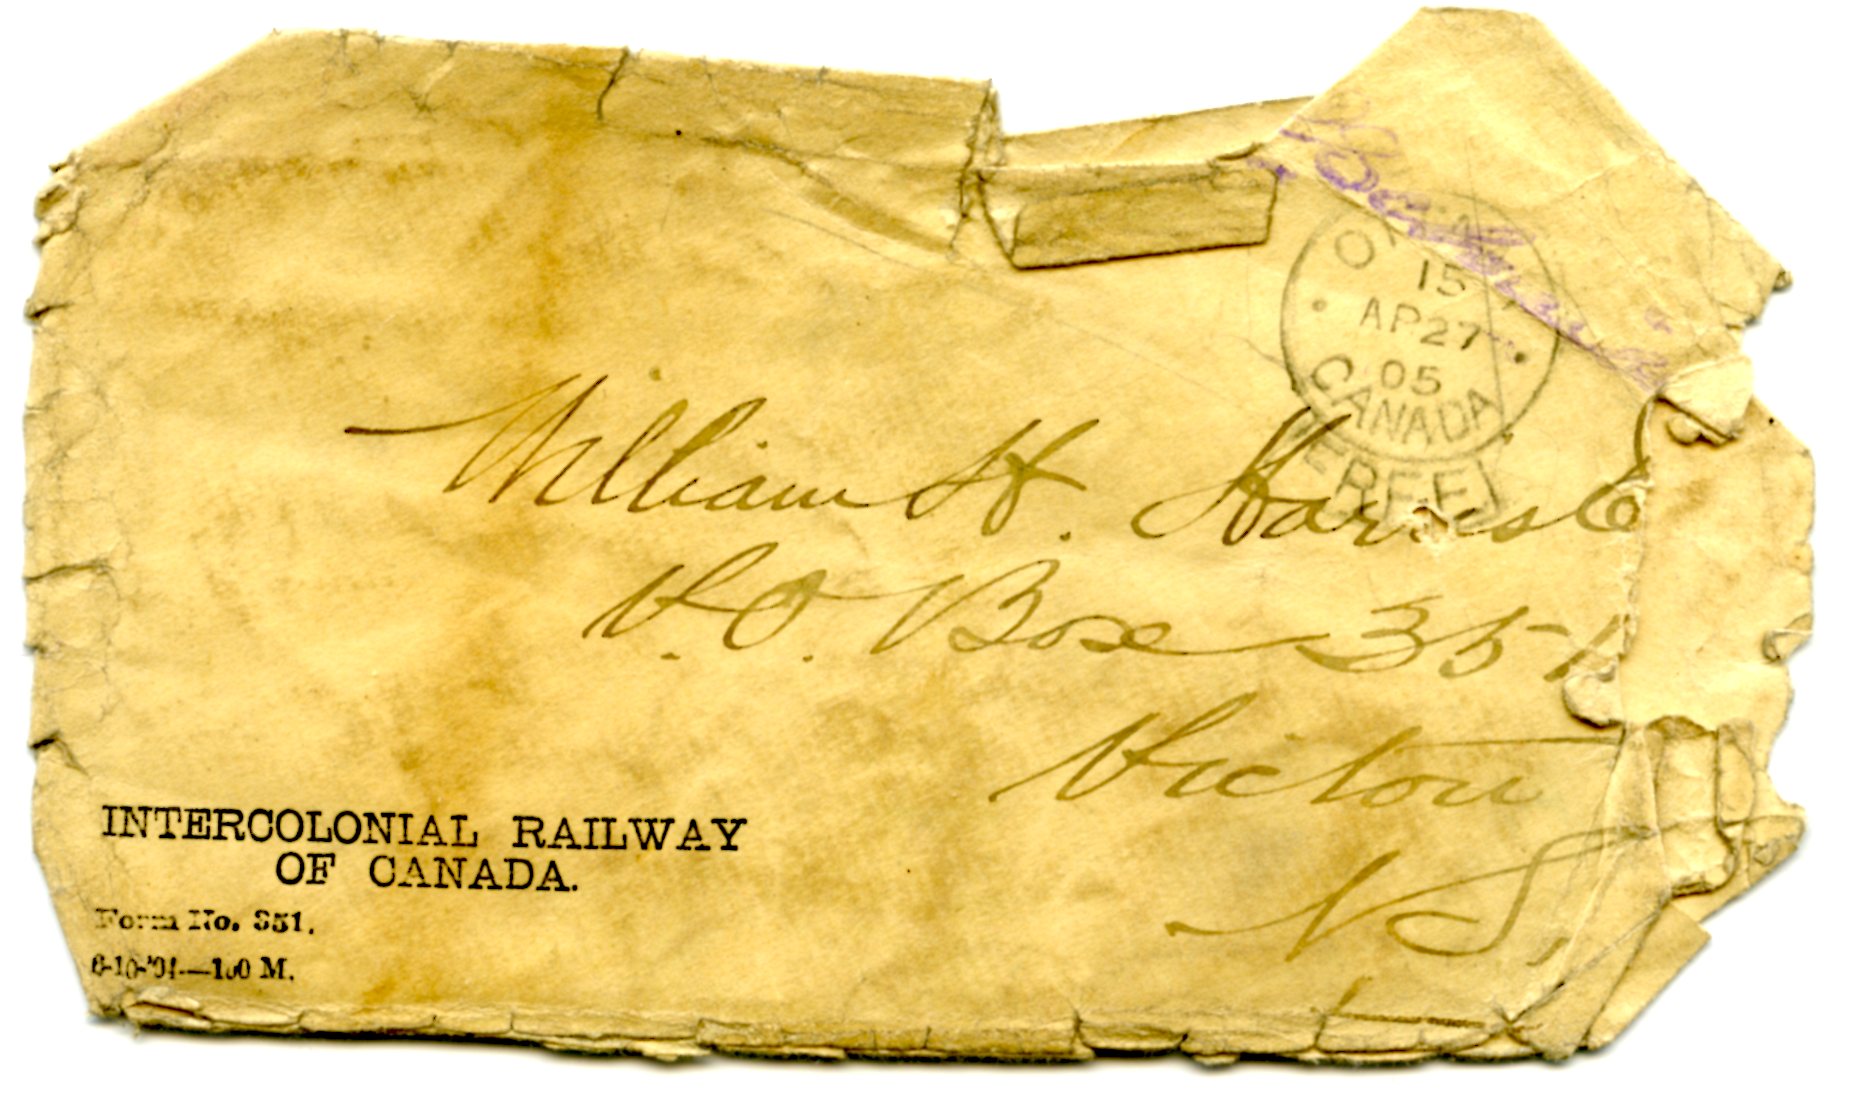 15
AP 27
05
CANADA
FREE
William H. Harris E
P.O. Box 351
Pictou
N.S.
INTERCOLONIAL RAILWAY
OF CANADA.
Form No. 351.